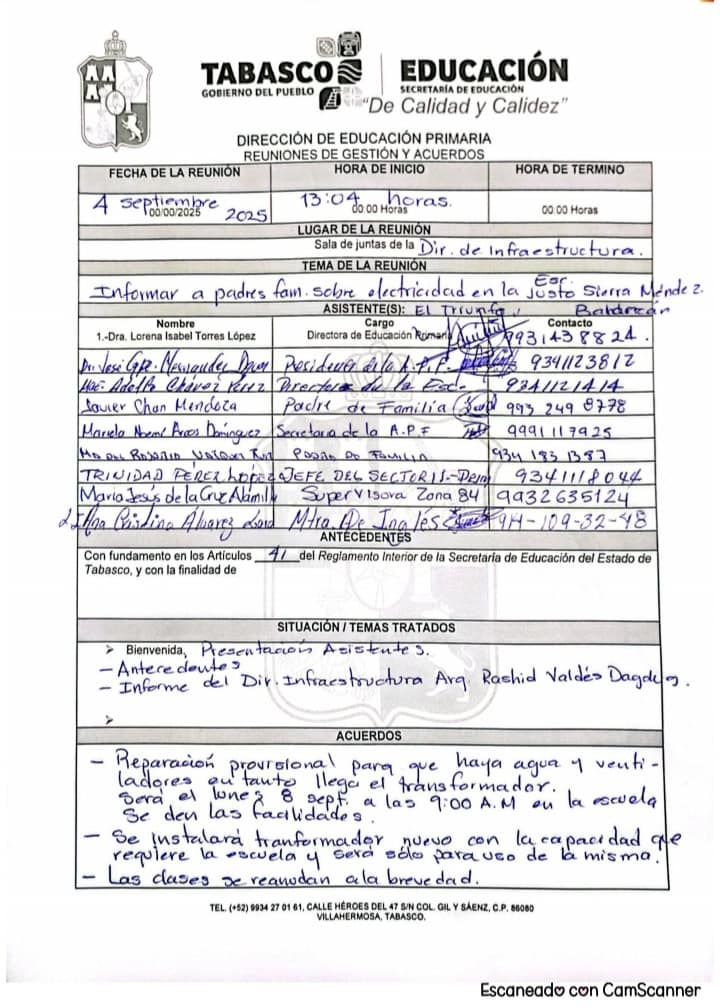 TABASCO
GOBIERNO DEL PUEBLO
EDUCACIÓN
SECRETARÍA DE EDUCACIÓN
"De Calidad y Calidez"
DIRECCIÓN DE EDUCACIÓN PRIMARIA
REUNIONES DE GESTIÓN Y ACUERDOS
FECHA DE LA REUNIÓN HORA DE INICIO HORA DE TERMINO
4 septiembre 2025 13:04 horas.
00/00/2025 00:00 Horas 00:00 Horas
LUGAR DE LA REUNIÓN
Sala de juntas de la Dir. de Infraestructura.
TEMA DE LA REUNIÓN
Informar a padres fam. sobre electricidad en la Esc. Justo Sierra Méndez.
ASISTENTE(S): El Triunfo, Balancán
Nombre Cargo Contacto
1.-Dra. Lorena Isabel Torres López Directora de Educación Primaria 9931438824.
Presidente de la A.P.F. 9341123812
Adolfo Chávez Pérez Director de la Esc. 9341121414
Javier Chan Mendoza Padre de Familia 993 249 8778
Mariela Noemí Arcos Domínguez Secretaria de la A.P.F 9991117925
Ma del Rosario Padre de Familia 934 183 1387
TRINIDAD PÉREZ LOPEZ JEFE DEL SECTOR 15.- 9341118044
Maria Jesús de la Cruz Alamilla Supervisora Zona 84 9932635124
Cristina Álvarez Mtra. De Inglés 914-109-32-48
ANTECEDENTES
Con fundamento en los Artículos 41 del Reglamento Interior de la Secretaría de Educación del Estado de
Tabasco, y con la finalidad de
SITUACIÓN / TEMAS TRATADOS
➢ Bienvenida, Presentación Asistentes.
- Antecedentes
- Informe del Dir. Infraestructura Arq. Rashid Valdés Dagdug.
➢
ACUERDOS
- Reparación provisional para que haya agua y venti-
ladores en tanto llega el transformador.
Será el lunes 8 sept. a las 9:00 A.M en la escuela
Se den las facilidades.
- Se instalará tranformador nuevo con la capacidad que
requiere la escuela y será sólo para uso de la misma.
- Las clases se reanudan a la brevedad.
TEL. (+52) 9934 27 01 61, CALLE HÉROES DEL 47 S/N COL. GIL Y SÁENZ, C.P. 86080
VILLAHERMOSA, TABASCO.
Escaneado con CamScanner